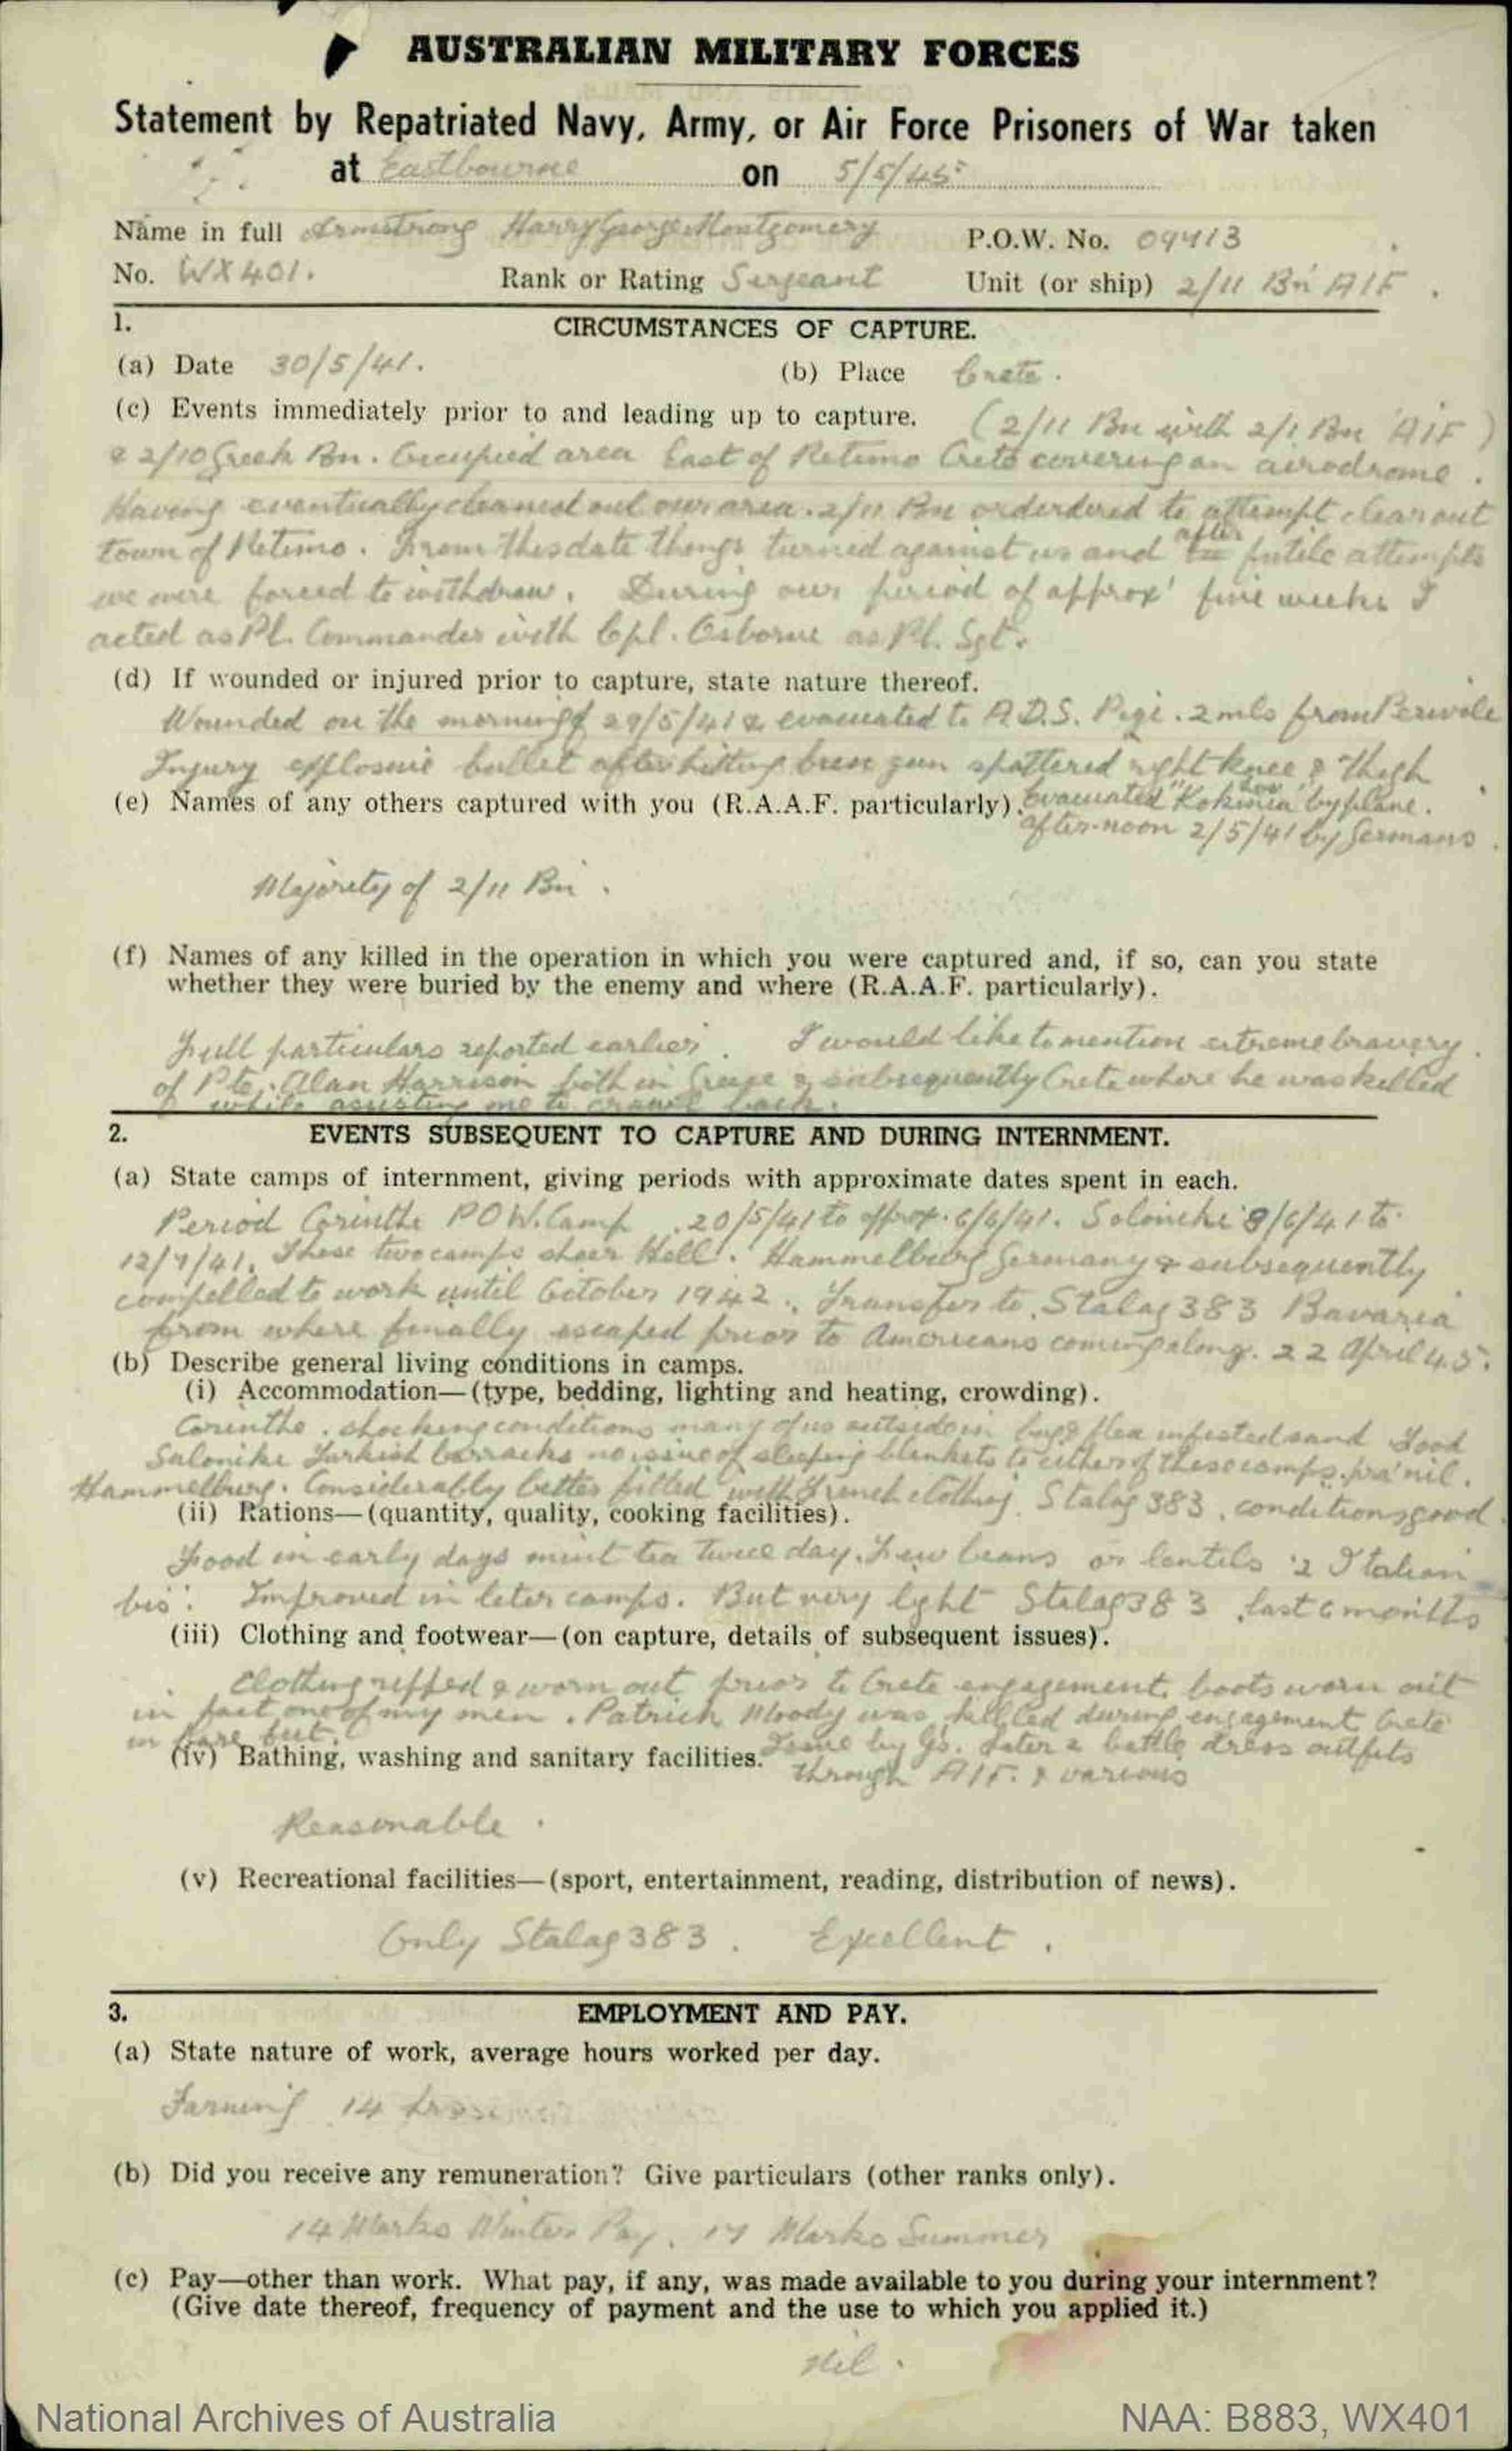 AUSTRALIAN MILITARY FORCES
Statement by Repatriated Navy, Army, or Air Force Prisoners of War taken
at Eastbourne on 5/5/45
Name in full Armstrong Harry George Montgomery P.O.W. No. 09413
No. WX401. Rank or Rating Sergeant Unit (or ship) 2/11 Bn AIF.
1. CIRCUMSTANCES OF CAPTURE.
(a) Date 30/5/41. (b) Place Crete.
(c) Events immediately prior to and leading up to capture. (2/11 Bn with 2/1 Bn AIF)
& 2/10 Greek Bn. Occupied area East of Retimo Crete covering an airodrome.
Having eventually cleaned out our area. 2/11 Bn orderdered to attempt clean out
town of Retimo. From this date things turned against us and after futile attempts
we were forced to withdraw. During our period of approx' five weeks I
acted as Pl. Commander with Cpl. Osborne as Pl. Sgt.
(d) If wounded or injured prior to capture, state nature thereof.
Wounded on the morning of 29/5/41 & evacuated to A.D.S. Pigi. 2 mls from
Injury explosive bullet after hitting bren gun spattered right knee & thigh
(e) Names of any others captured with you (R.A.A.F. particularly). Evacuated "Kokinia" by plane.
after-noon 2/5/41 by Germans.
Majority of 2/11 Bn.
(f) Names of any killed in the operation in which you were captured and, if so, can you state
whether they were buried by the enemy and where (R.A.A.F. particularly).
Full particulars reported earlier. I would like to mention extreme bravery.
of Pte. Alan Harrison both in Greece & subsequently Crete where he was killed
while assisting me to crawl back.
2. EVENTS SUBSEQUENT TO CAPTURE AND DURING INTERNMENT.
(a) State camps of internment, giving periods with approximate dates spent in each.
Period Corinthe P.O.W. Camp. 20/5/41 to approx. 6/6/41. Solonike 8/6/41 to
12/7/41. These two camps sheer Hell. Hammelburg Germany & subsequently
compelled to work until October 1942. Transfer to Stalag 383 Bavaria
from where finally escaped prior to Americans coming along. 22 April 45.
(b) Describe general living conditions in camps.
(i) Accommodation—(type, bedding, lighting and heating, crowding).
Corinthe. shocking conditions many of us outside in bug & flea infested sand Food
Salonike Turkish barracks no of sleeping blankets to either of these camps. nil.
Hammelburg. Considerably better fitted with French clothing. Stalag 383. conditions good
(ii) Rations—(quantity, quality, cooking facilities).
Food in early days mint tea twice day. Few beans or lentils 2 Italian
bis'. Improved in later camps. But very light Stalag 383 last 6 months
(iii) Clothing and footwear—(on capture, details of subsequent issues).
Clothing ripped & worn out prior to Crete engagement, boots worn out
in fact one of my men. Patrick Moody was killed during engagement Crete
in bare feet. Issue by Gs. later & battle dress outfits
(iv) Bathing, washing and sanitary facilities. through AIF. & various
Reasonable.
(v) Recreational facilities—(sport, entertainment, reading, distribution of news).
Only Stalag 383. Excellent.
3. EMPLOYMENT AND PAY.
(a) State nature of work, average hours worked per day.
Farming 14 hrs
(b) Did you receive any remuneration? Give particulars (other ranks only).
14 Marks Winter Pay. 17 Marks Summer
(c) Pay—other than work. What pay, if any, was made available to you during your internment?
(Give date thereof, frequency of payment and the use to which you applied it.)
Nil.
National Archives of Australia NAA: B883, WX401